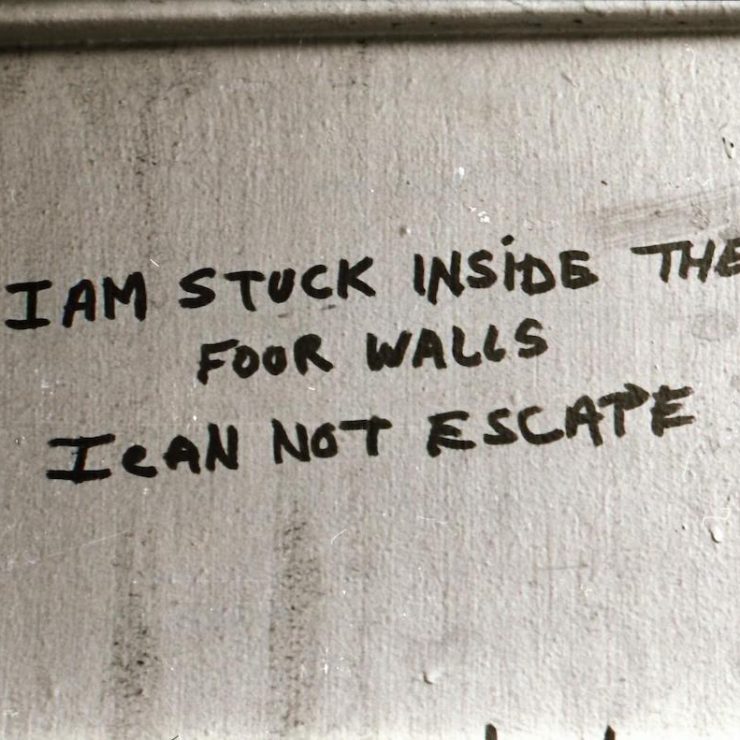 I AM STUCK INSIDE THE
FOUR WALLS
I CAN NOT ESCAPE